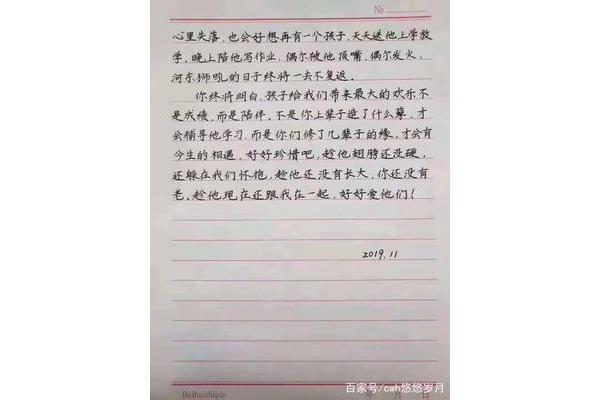 №
心里失落,也会好想再有一个孩子,天天送他上学放
学,晚上陪他写作业,偶尔被他顶嘴,偶尔发火,
河东狮吼的日子终将一去不复返。
你终将明白,孩子给我们带来最大的欢乐不
是成绩,而是陪伴。不是你上辈子造了什么孽,才
会辅导他学习,而是你们修了几辈子的缘,才会有
今生的相遇,好好珍惜吧,趁他翅膀还没硬,
还躲在我们怀抱,趁他还没有长大,你还没有
老,趁他现在还跟我在一起,好好爱他们!
2019.11
百家号/cwh悠悠岁月
Beibaizhipin 年 月 日